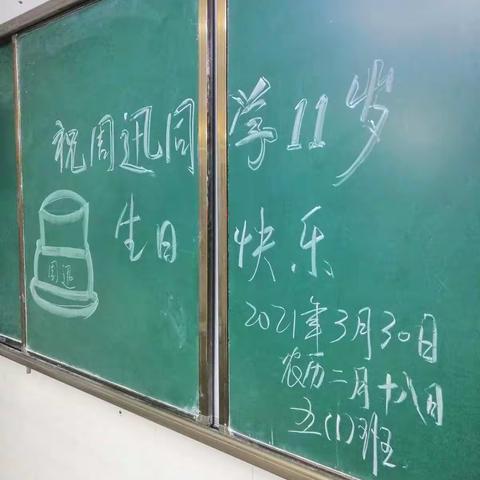 祝周迅同学11岁
生日快乐
周迅
2021年3月30日
农历二月十八日
五(1)班